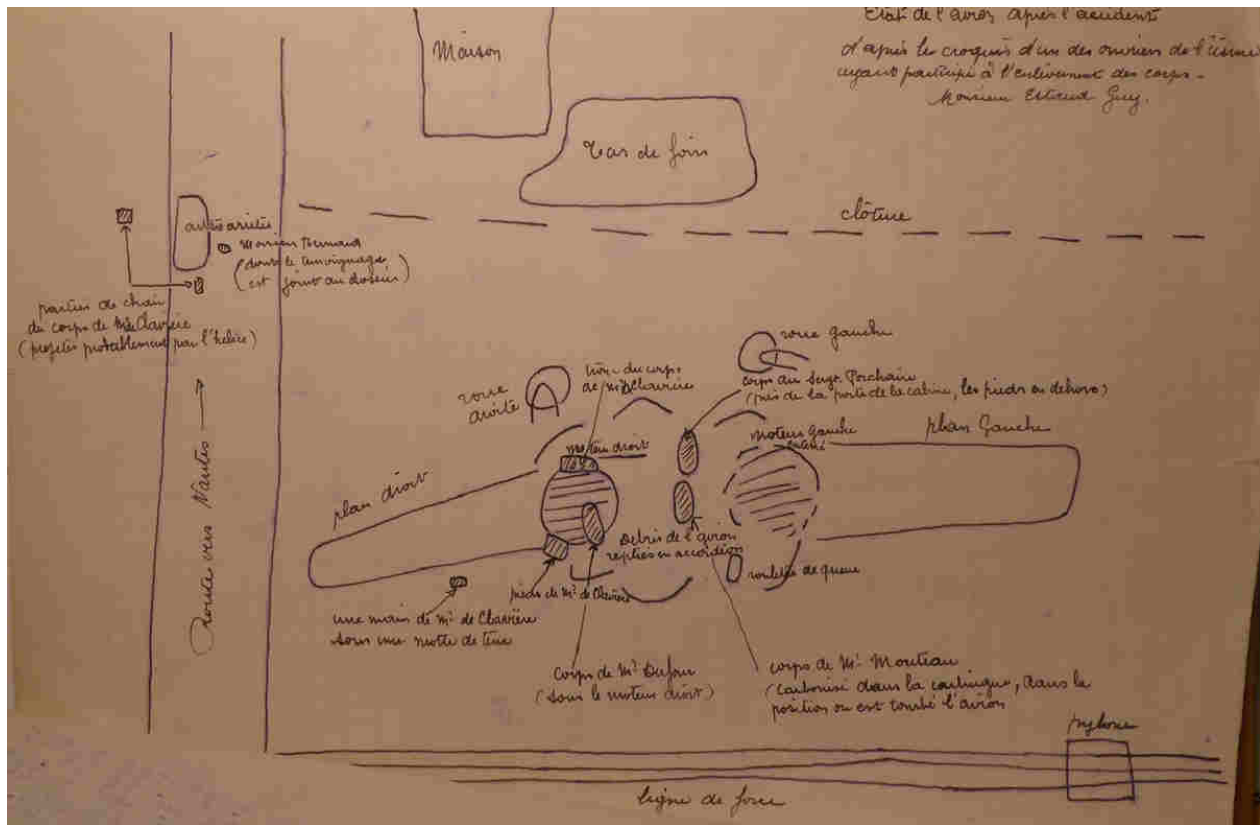 Etat de l'avion après l'accident
d'après le croquis d'un des ouvriers de l'usine
ayant participé à l'enlèvement des corps -
Monsieur Guy.
Maison
Tas de foin
clôture
auto arrêtée
Monsieur
(dont le témoignage
est joint au dossier)
parties de chair
du corps de Mr de Clavière
(projetés probablement par l'hélice)
Route vers Nantes
roue gauche
roue
droite
tronc du corps
de Mr de Clavière
corps du Serg. Porchaire
(près de la porte de la cabine, les pieds en dehors)
moteur droit
moteur gauche
plan Gauche
plan droit
Débris de l'avion
repliés en accordéon
roulette de queue
pieds de Mr de Clavière
une main de Mr de Clavière
sous une motte de terre
corps de Mr Dufour
(sous le moteur droit)
corps de Mr Mouteau
(carbonisé dans la carlingue, dans la
position ou est tombé l'avion
pylone
ligne de force